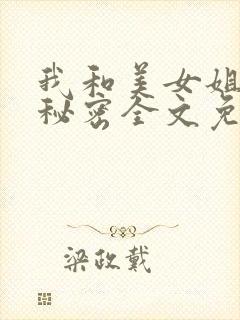 我和美女姐
秘密全文免
梁政戴